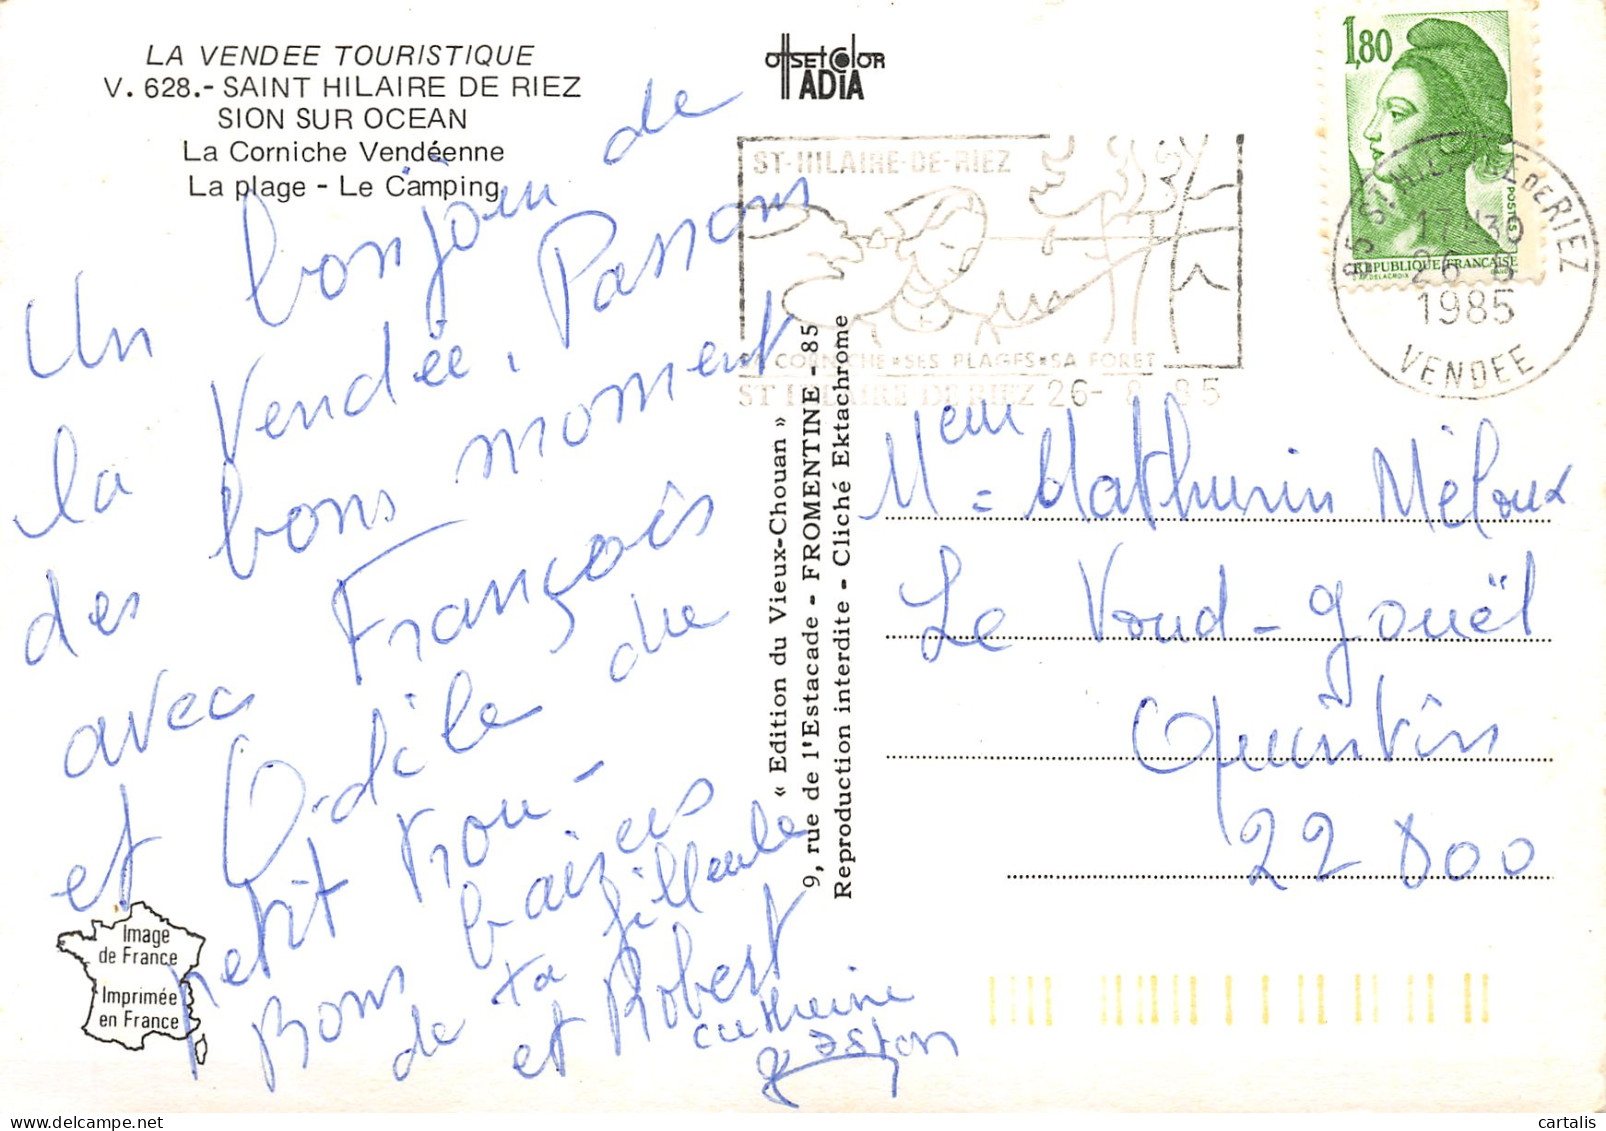 LA VENDEE TOURISTIQUE
V. 628.- SAINT HILAIRE DE RIEZ
SION SUR OCEAN
La Corniche Vendéenne
La plage - Le Camping
OffsetColor
ADIA
1,80
POSTES
REPUBLIQUE FRANÇAISE
ST-HILAIRE-DE-RIEZ
SA CORNICHE * SES PLAGES * SA FORET
ST HILAIRE DE RIEZ 26- 8 85
85 ST HILAIRE DE RIEZ
17 H 30
26 - 8
1985
VENDEE
Un bonjour de
la Vendée, Passons
des bons moment
avec François
et Odile du
petit
Bons baisers
de ta filleule
et Robert
catherine
gaston
« Edition du Vieux-Chouan »
9, rue de l'Estacade - FROMENTINE - 85
Reproduction interdite - Cliché Ektachrome
Mathurin Méloux
Le
Quintin
22 800
Image
de France
Imprimée
en France
cartalis